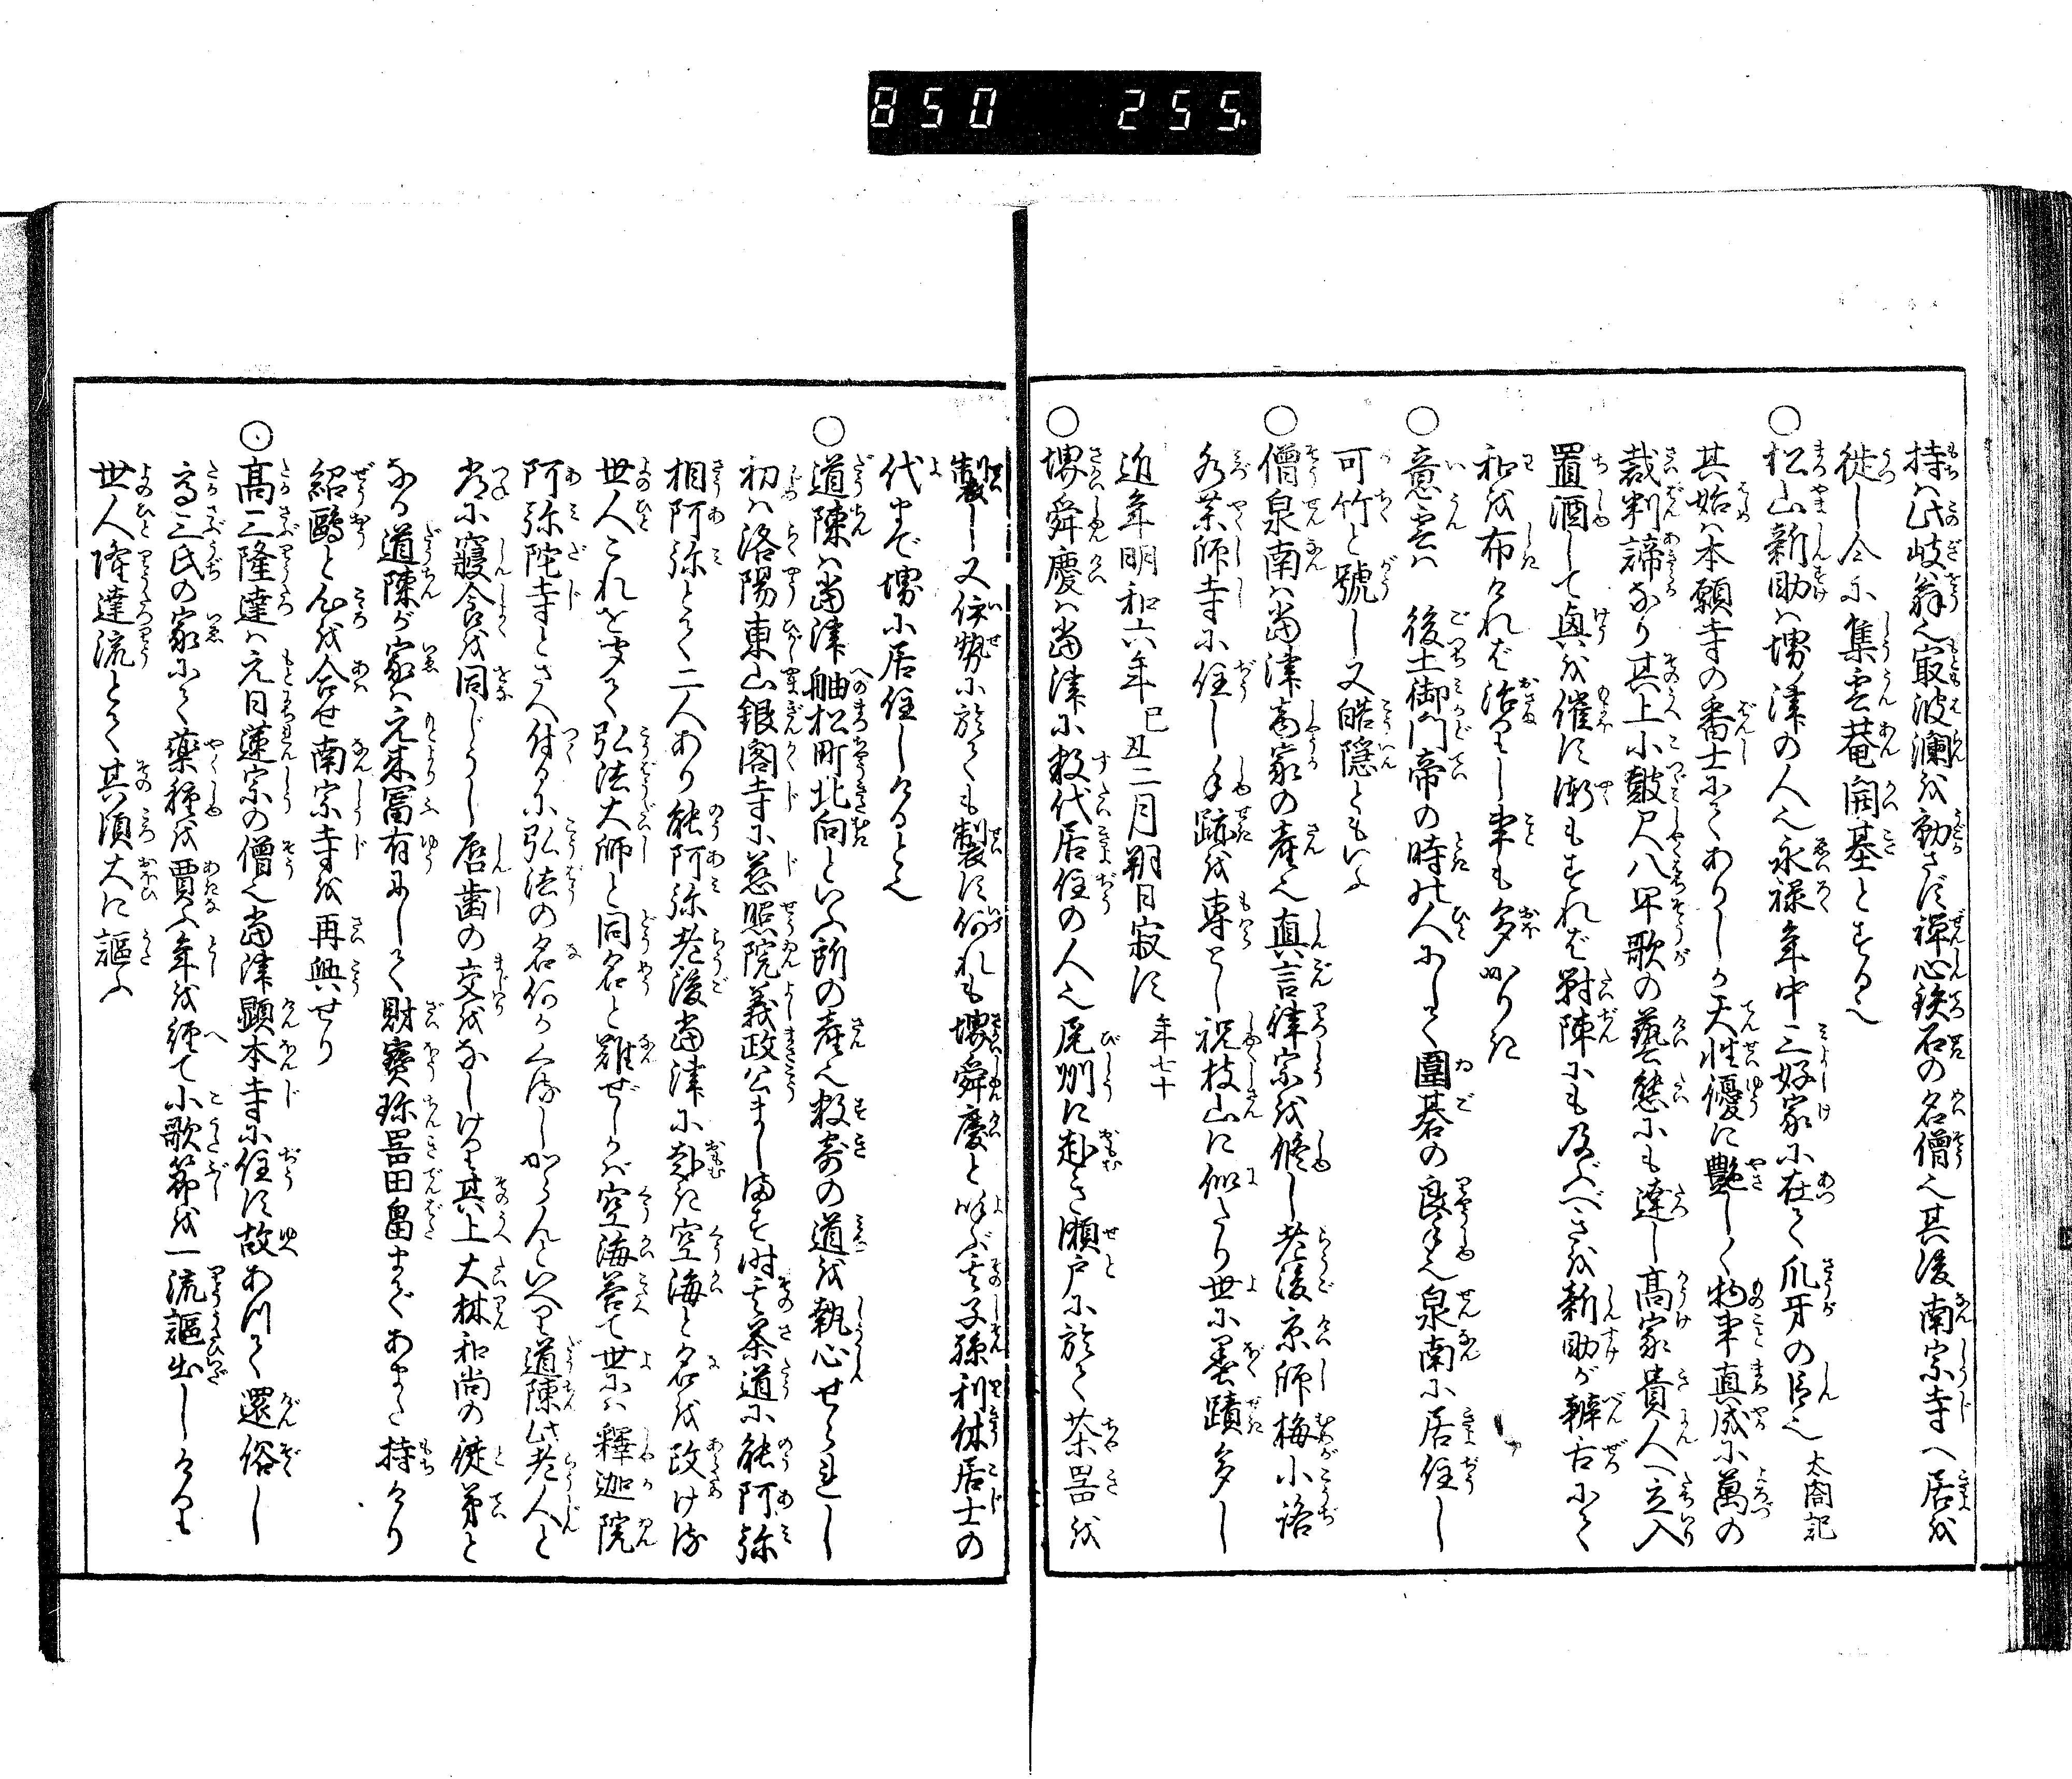 850 255
持ハ此岐翁也最波瀾を動さず禅心鉄石の名僧也其後南宗寺へ居を
徙し今に集雲菴開基とするへ
○松山新助ハ堺津の人也永禄年中三好家に在て爪牙の臣也 太閤記
其始ハ本願寺の番士にてありしか天性優に艶しく物事真成に萬の
裁判諦なり其上小皷尺八早歌の藝態にも達し高家貴人へ立入
置酒して興を催に漸もすれバ対陣にも及ぶべきを新助が辯舌にて
和を布けれバ治りし事も多かりき
○意雲ハ 後土御門帝の時の人にして圍碁の良手也泉南に居住し
可竹と號し又皓隠ともいふ
○僧泉南ハ當津商家の産也真言律宗を脩し老後京師梅小路
水薬師寺に住し手跡を専とし祝枝山に似たり世に墨蹟多し
近年明和六年己丑二月朔日寂す 年七十
○堺舜慶ハ當津に数代居住の人也尾州に赴き瀬戸に於て茶器を
製し又伊勢に於ても製す何れも堺舜慶と呼ぶ其子孫利休居士の
代まで堺に居住しけると也
○道陳ハ當津舳松町北向といふ所の産也数寄の道を執心せられし
初ハ洛陽東山銀閣寺に慈照院義政公まします時其茶道に能阿弥
相阿弥とて二人あり能阿弥老後當津に赴き空海と名を改け る
世人これを聞て弘法大師と同名と難ぜしかバ空海答て世にハ釋迦院
阿弥陀寺とさへ付るに弘法の名何かくるしからんといへり道陳此老人と
常に寝食を同じうし唇歯の交をなしける其上大林和尚の徒弟と
なる道陳が家ハ元来冨有にして財寳珎器田畠まであまた持けり
紹鷗と心を合せ南宗寺を再興せり
○高三隆達ハ元日蓮宗の僧也當津顕本寺に住す故あつて還俗し
高三氏の家にて薬種を賈ふ年を経て小歌節を一流謳出しけり
世人隆達流とて其頃大に謳ふ